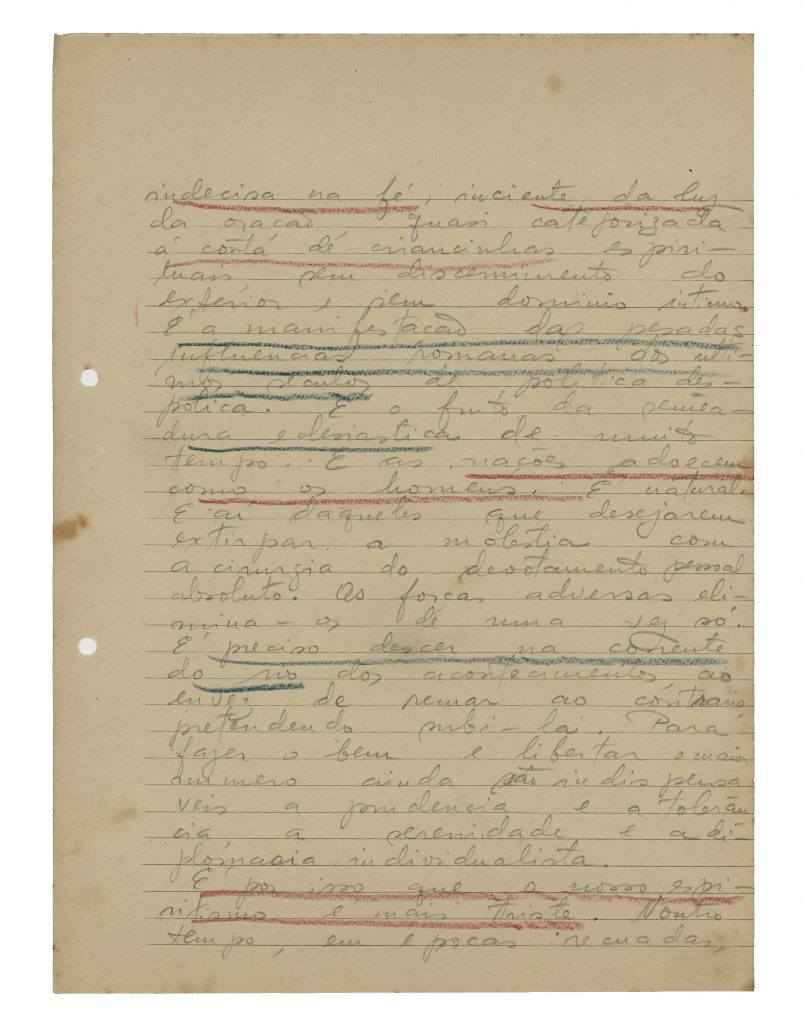 indecisa na fé, inciente da luz
da oração quasi categorizada
á conta de criancinhas espiri-
tuais sem discernimento do
exterior e sem dominio intimo.
E' a manifestacão das pesadas
influencias romanas, dos ulti-
mos seculos de politica des-
potica. E' o fruto da semea-
dura eclesiastica de muito
tempo. E as nações adoecem
como os homens. E' natural.
E ai daqueles que desejarem
extirpar a molestia com
a cirurgia do devotamento pessoal
absoluto. As forças adversas eli-
mina-os de uma vez só.
E' preciso descer na corrente
do rio dos acontecimentos ao
envez de remar ao contrario
pretendendo subi-la. Para
fazer o bem e libertar o maior
numero ainda são indispensa
veis a prudencia e a tolerân
cia a serenidade e a di-
plomacia individualista.
E' por isso que o nosso espi-
ritismo é mais triste. Noutro
tempo, em epocas recuadas,